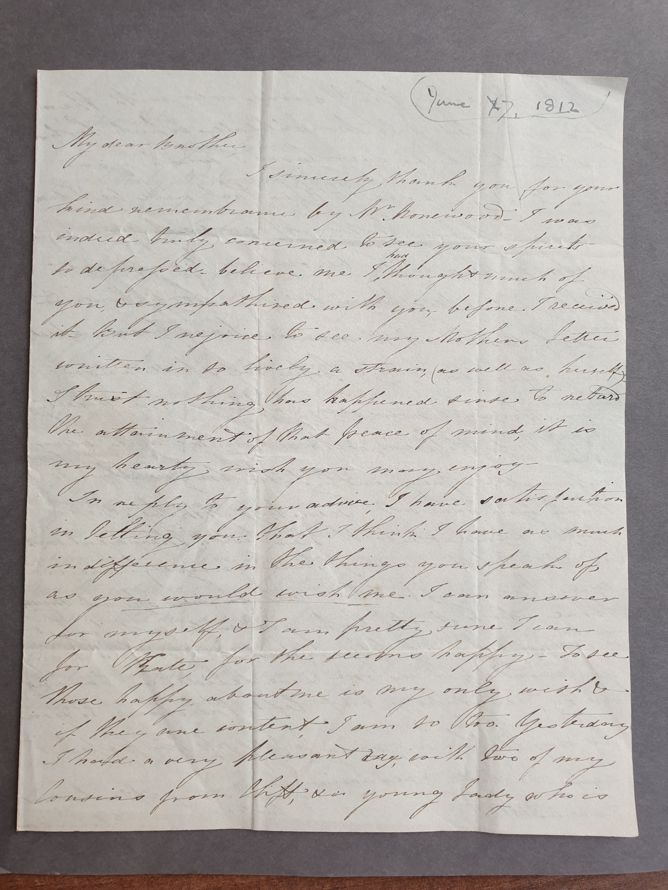 (June 27, 1812)
My dear Mother
I sincerely thank you for your
kind remembrance by Mr. Honewood - I was
indeed truly concerned to see your spirits
so depressed. believe me I had thought much of
you, & sympathised with you before I received
it but I rejoice to see my Mothers letter
written in so lively a strain, (as well as herself)
I trust nothing has happened since to retard
the attainment of that peace of mind, it is
my hearty wish you may enjoy
In reply to your advice, I have satisfaction
in letting you that I think I have as much
indifference in the things you speak of
as you would wish me. I can answer
for myself, & I am pretty sure I can
for Kate, for she seems happy - To see
those happy about me is my only wish &
if they are content I am so too. Yesterday
I had a very pleasant day, with two of my
Cousins from & a young Lady who is